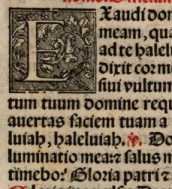 EXaudi dom
meam, qua
ad te halelu
dixit cor m
siui vultum
tum tuum domine requ
auertas faciem tuam a
luiah, haleluiah. ℣. Do
luminatio mea: ⁊ salus m
timebo: Gloria patri ⁊